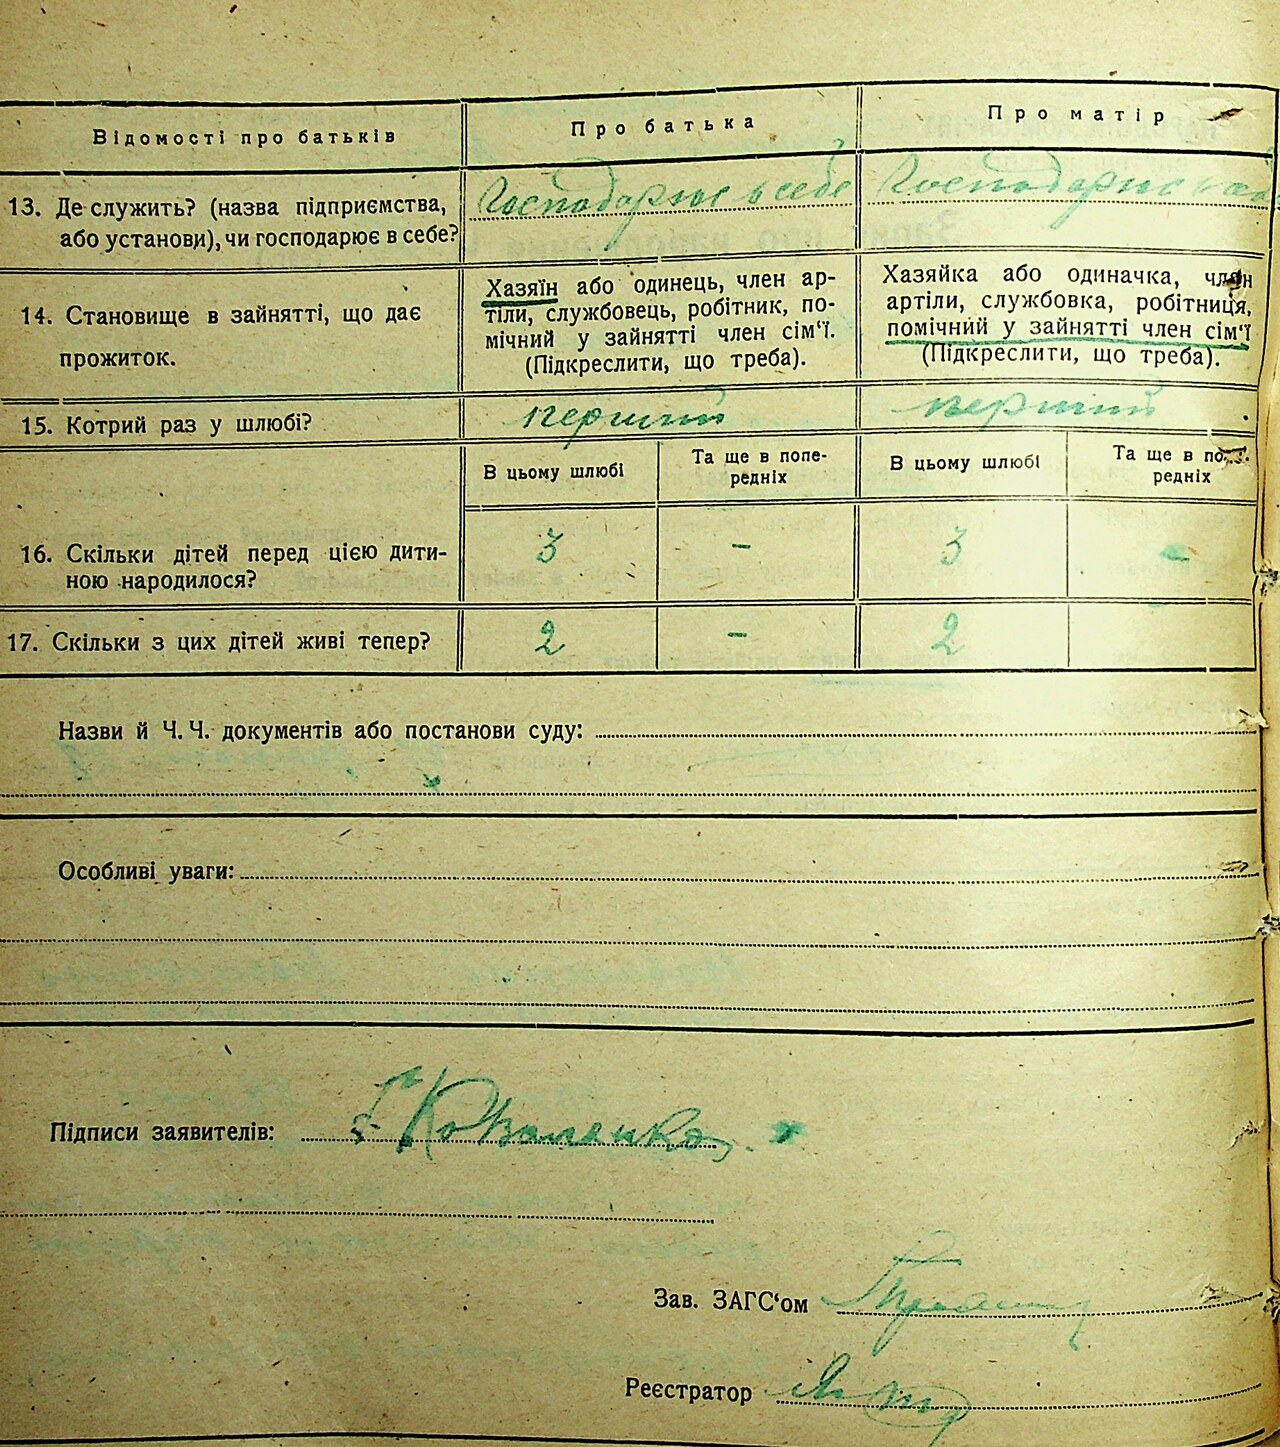 Відомості про батьків
Про батька
Про матір
13. Де служить? (назва підприємства,
або установи), чи господарює в себе?
Господарює в себе
Господарює
14. Становище в зайнятті, що дає
прожиток.
Хазяїн або одинець, член ар-
тіли, службовець, робітник, по-
мічний у зайнятті член сім'ї.
(Підкреслити, що треба).
Хазяйка або одиначка, член
артіли, службовка, робітниця,
помічний у зайнятті член сім'ї
(Підкреслити, що треба).
15. Котрий раз у шлюбі?
перший
перший
В цьому шлюбі
Та ще в попе-
редніх
В цьому шлюбі
Та ще в по
редніх
16. Скільки дітей перед цією дити-
ною народилося?
3
-
3
-
17. Скільки з цих дітей живі тепер?
2
-
2
Назви й Ч. Ч. документів або постанови суду:
Особливі уваги:
Підписи заявителів:
Коваленко
Зав. ЗАГС'ом
Реєстратор